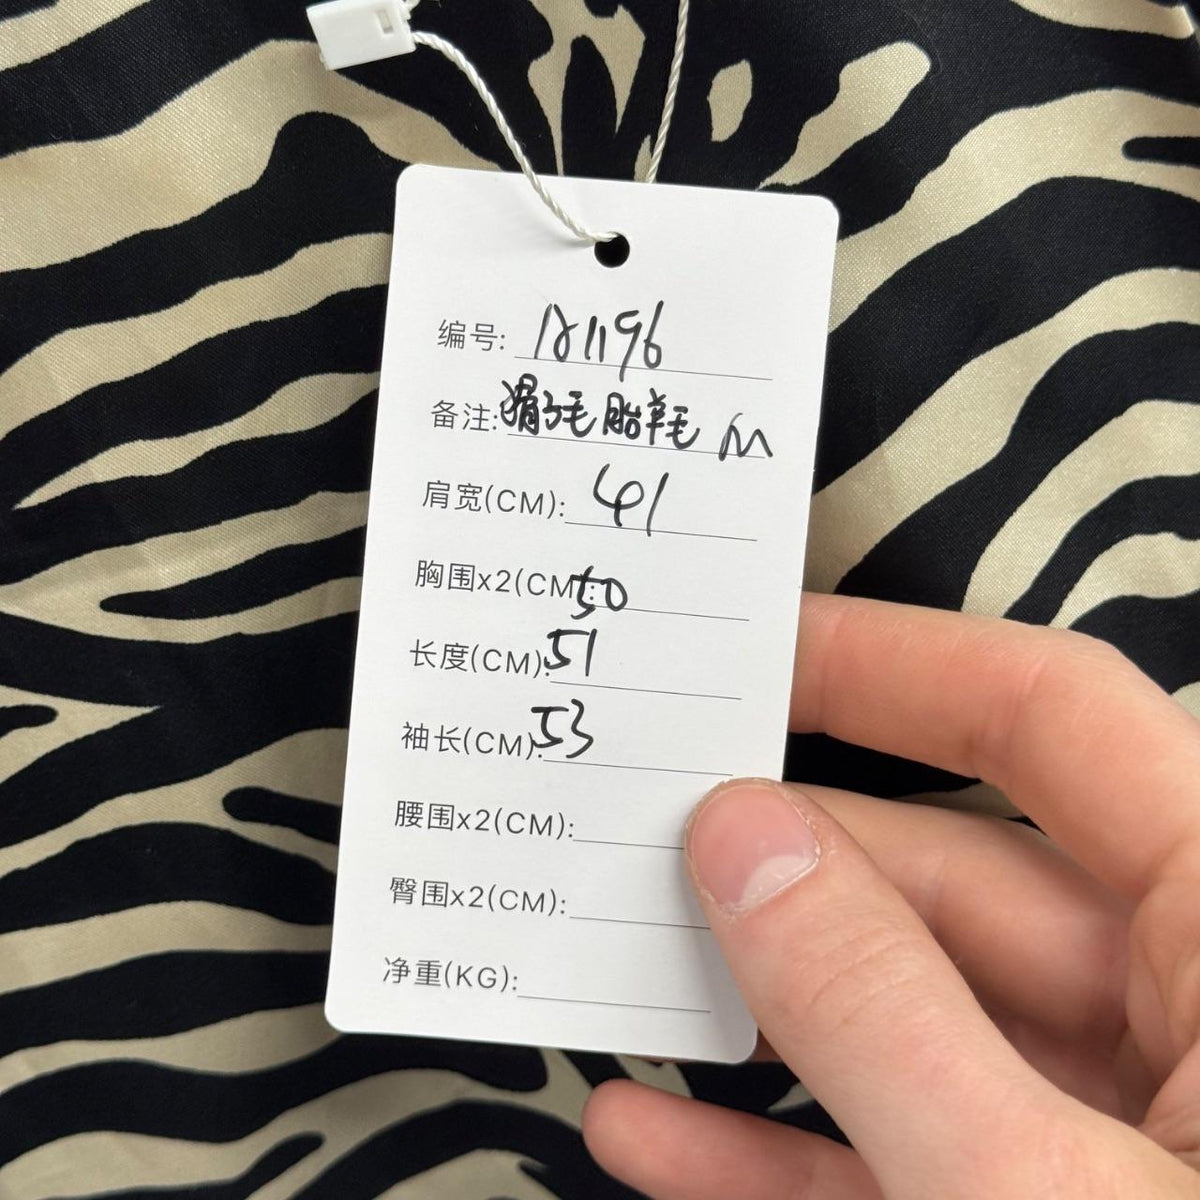 编号: 121196
备注: 滑子毛 胎羊毛 M
肩宽(CM): 41
胸围x2(CM): 50
长度(CM): 51
袖长(CM): 53
腰围x2(CM):
臀围x2(CM):
净重(KG):